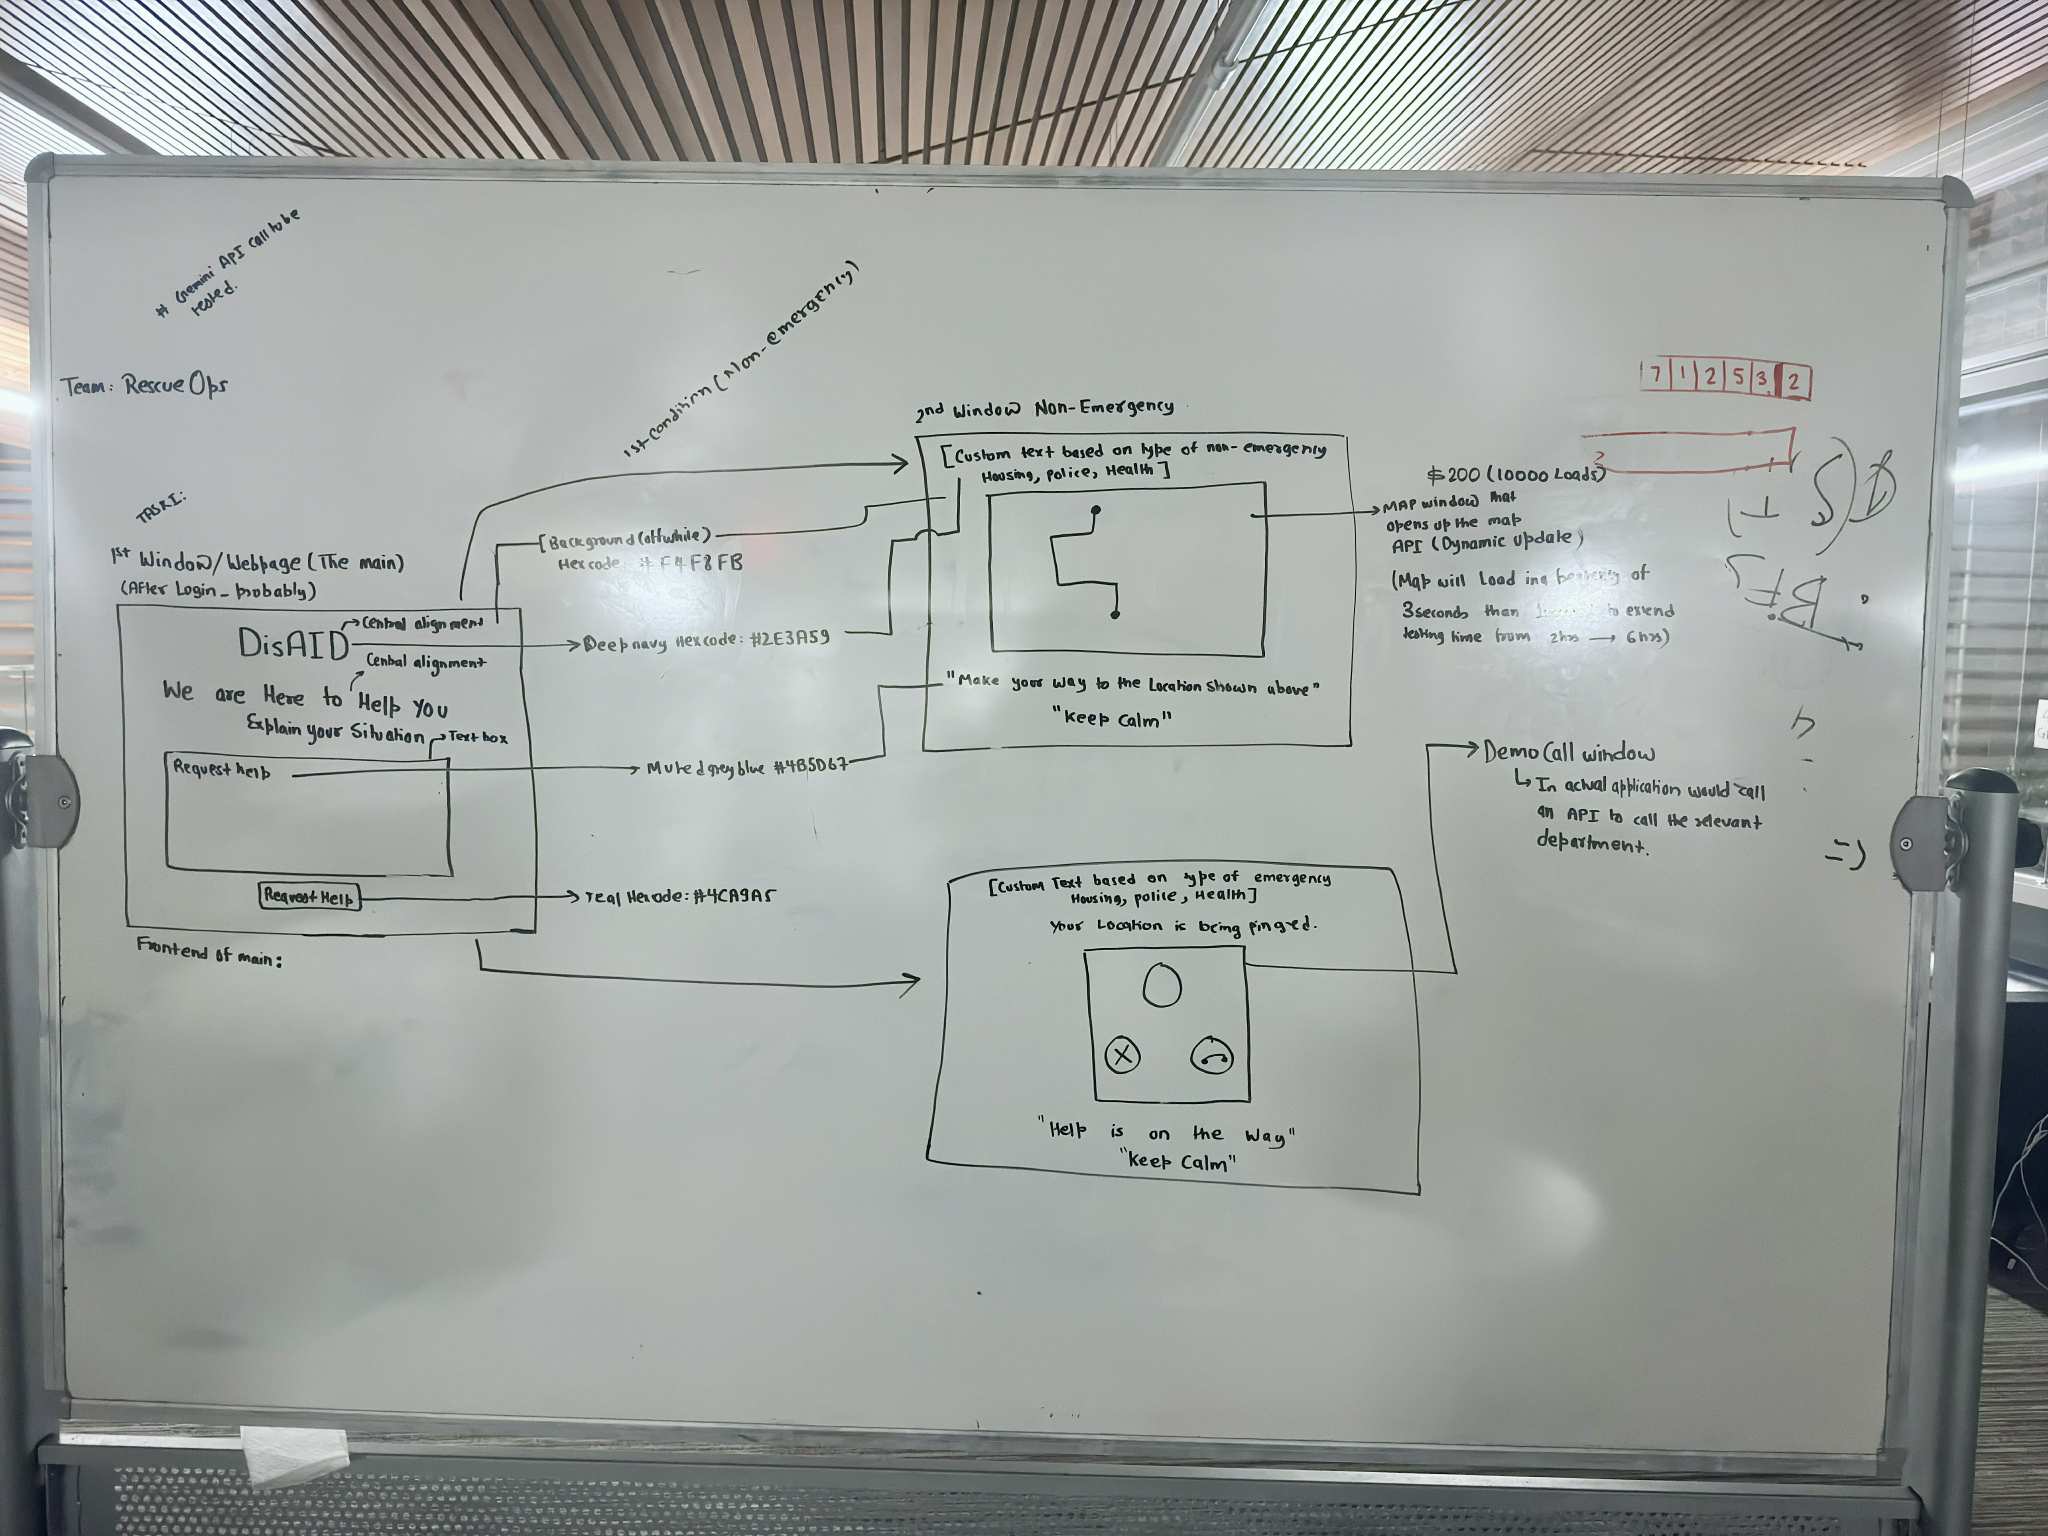 # Gemini API call to be
tested.
Team: RescueOps
TASK 1:
1st Window/Webpage (The main)
(After Login_probably)
DisAID
Central alignment
Central alignment
We are Here to Help You
Explain your Situation
Text box
Request help
Request Help
Frontend of main:
1st-condition (Non-emergency)
[Background (offwhite)
Hexcode # F4F8FB
Deep navy Hexcode: #2E3A59
Muted grey blue #4B5D67
Teal Hexcode: #4CA9A5
2nd Window Non-Emergency
[Custom text based on type of non-emergency
Housing, Police, Health]
"Make your way to the Location shown above"
"Keep Calm"
$200 (10000 Loads)
MAP window that
opens up the map
API (Dynamic Update)
(Map will Load in a of
3seconds than to extend
testing time from 2hrs → 6hrs)
7 1 2 5 3 2
2
Demo Call window
In actual application would call
an API to call the relevant
department.
=>
[Custom Text based on type of emergency
Housing, police, Health]
Your Location is being pinged.
X
"Help is on the way"
"Keep Calm"